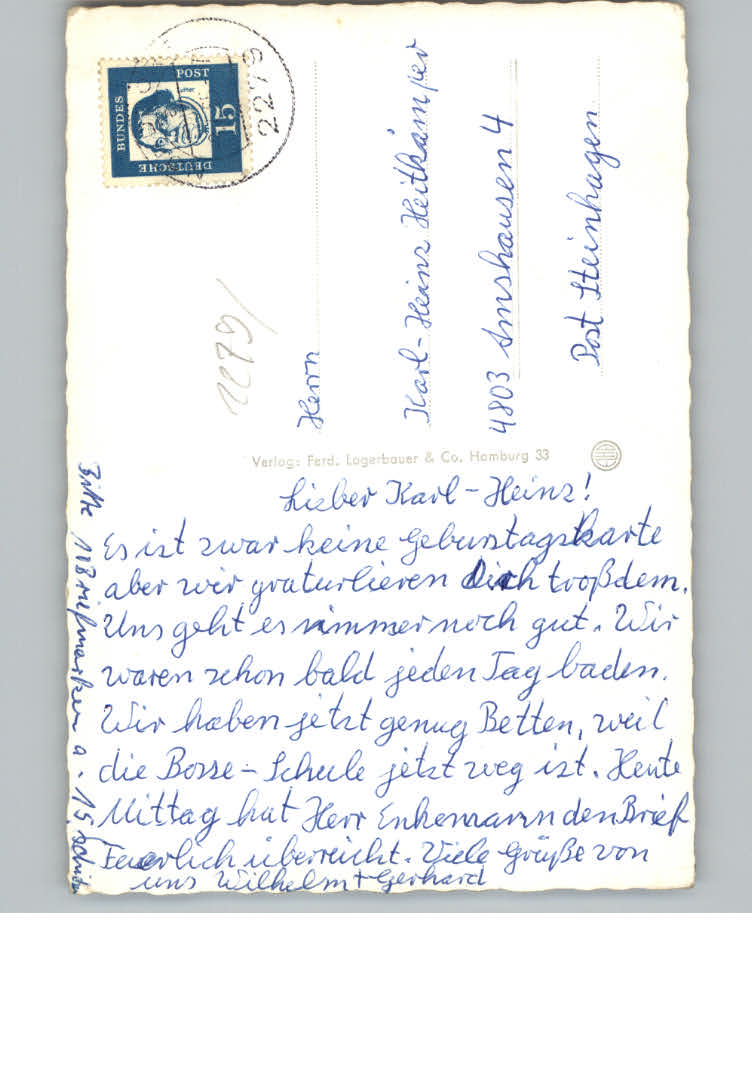 DEUTSCHE
BUNDES
POST
15
2279
2279/
Herrn
Karl-Heinz Heitkämper
4803 Amshausen 4
Post Steinhagen
Verlag: Ferd. Lagerbauer & Co. Hamburg 33
Lieber Karl-Heinz!
Es ist zwar keine Geburstagskarte
aber wir graturlieren Dich troßdem.
Uns geht es immer noch gut. Wir
waren schon bald jeden Tag baden.
Wir haben jetzt genug Betten, weil
die Bosse-Schule jetzt weg ist. Heute
Mittag hat Herr Enkemann den Brief
Feuerlich überreicht. Viele Grüße von
uns Wilhelm + Gerhard
Bitte 11 Briefmarken a. 15 schicken